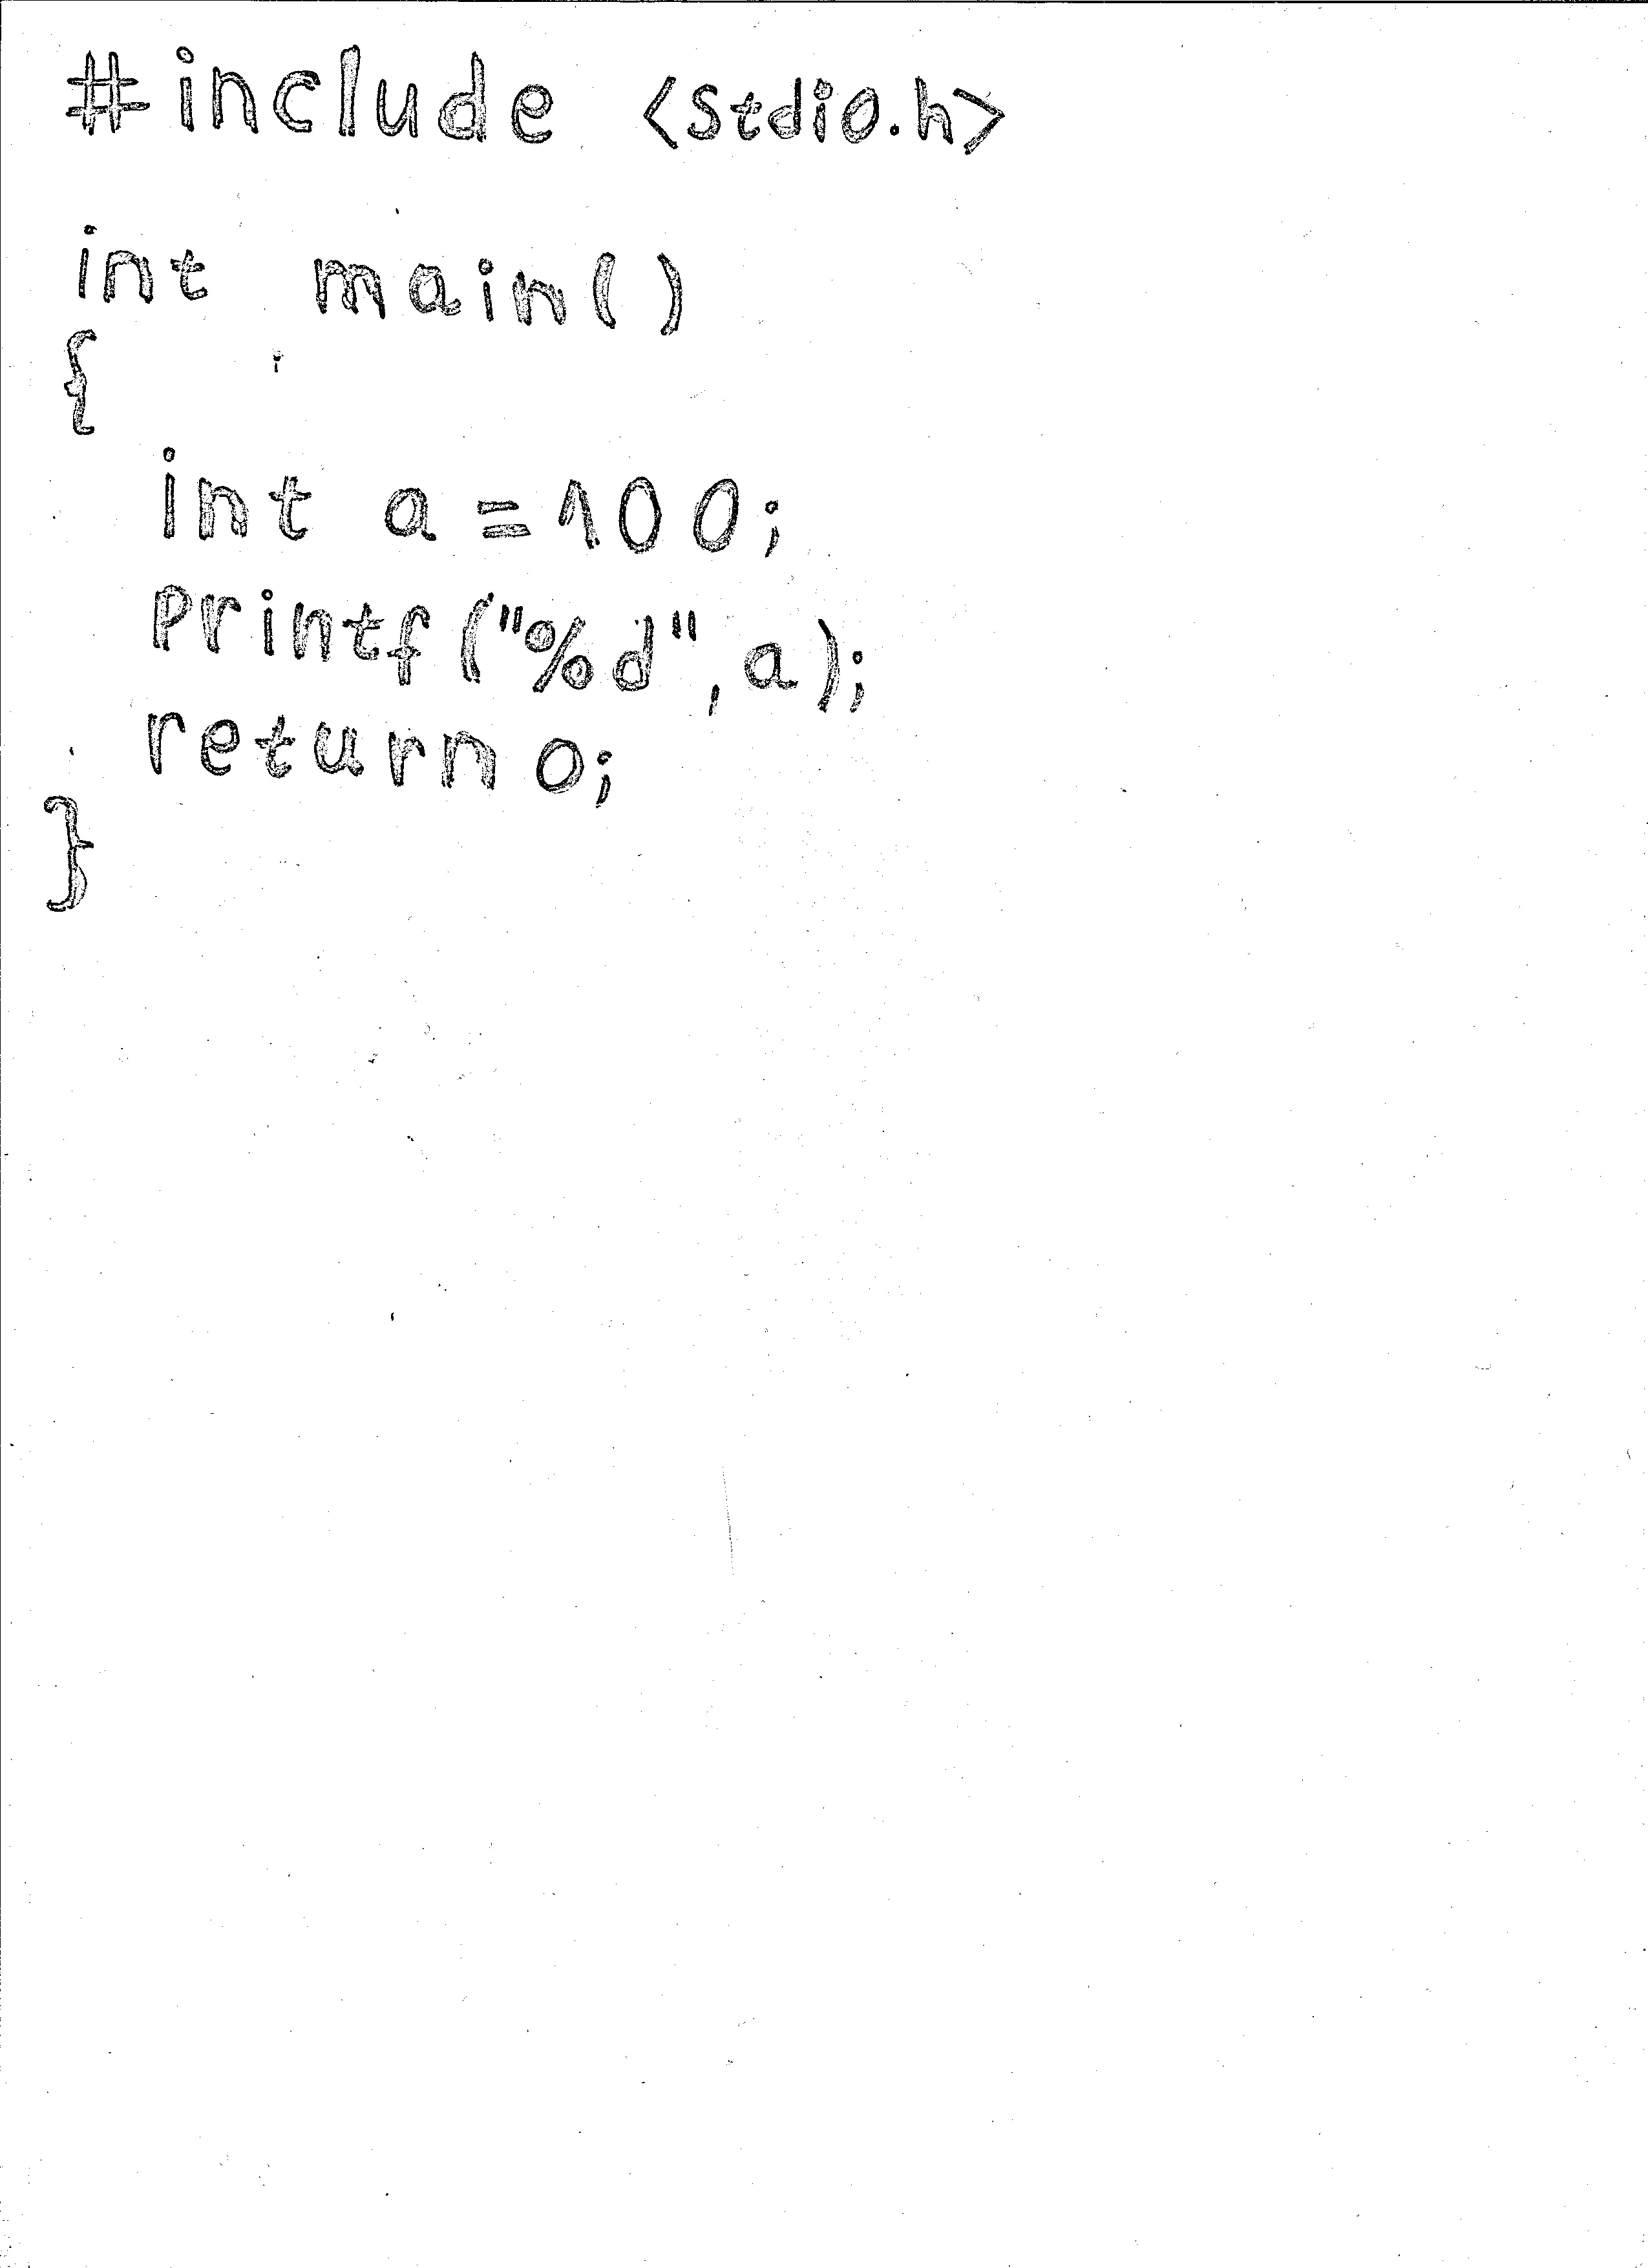 #include <stdio.h>
int main()
{
int a=100;
Printf("%d",a);
return 0;
}